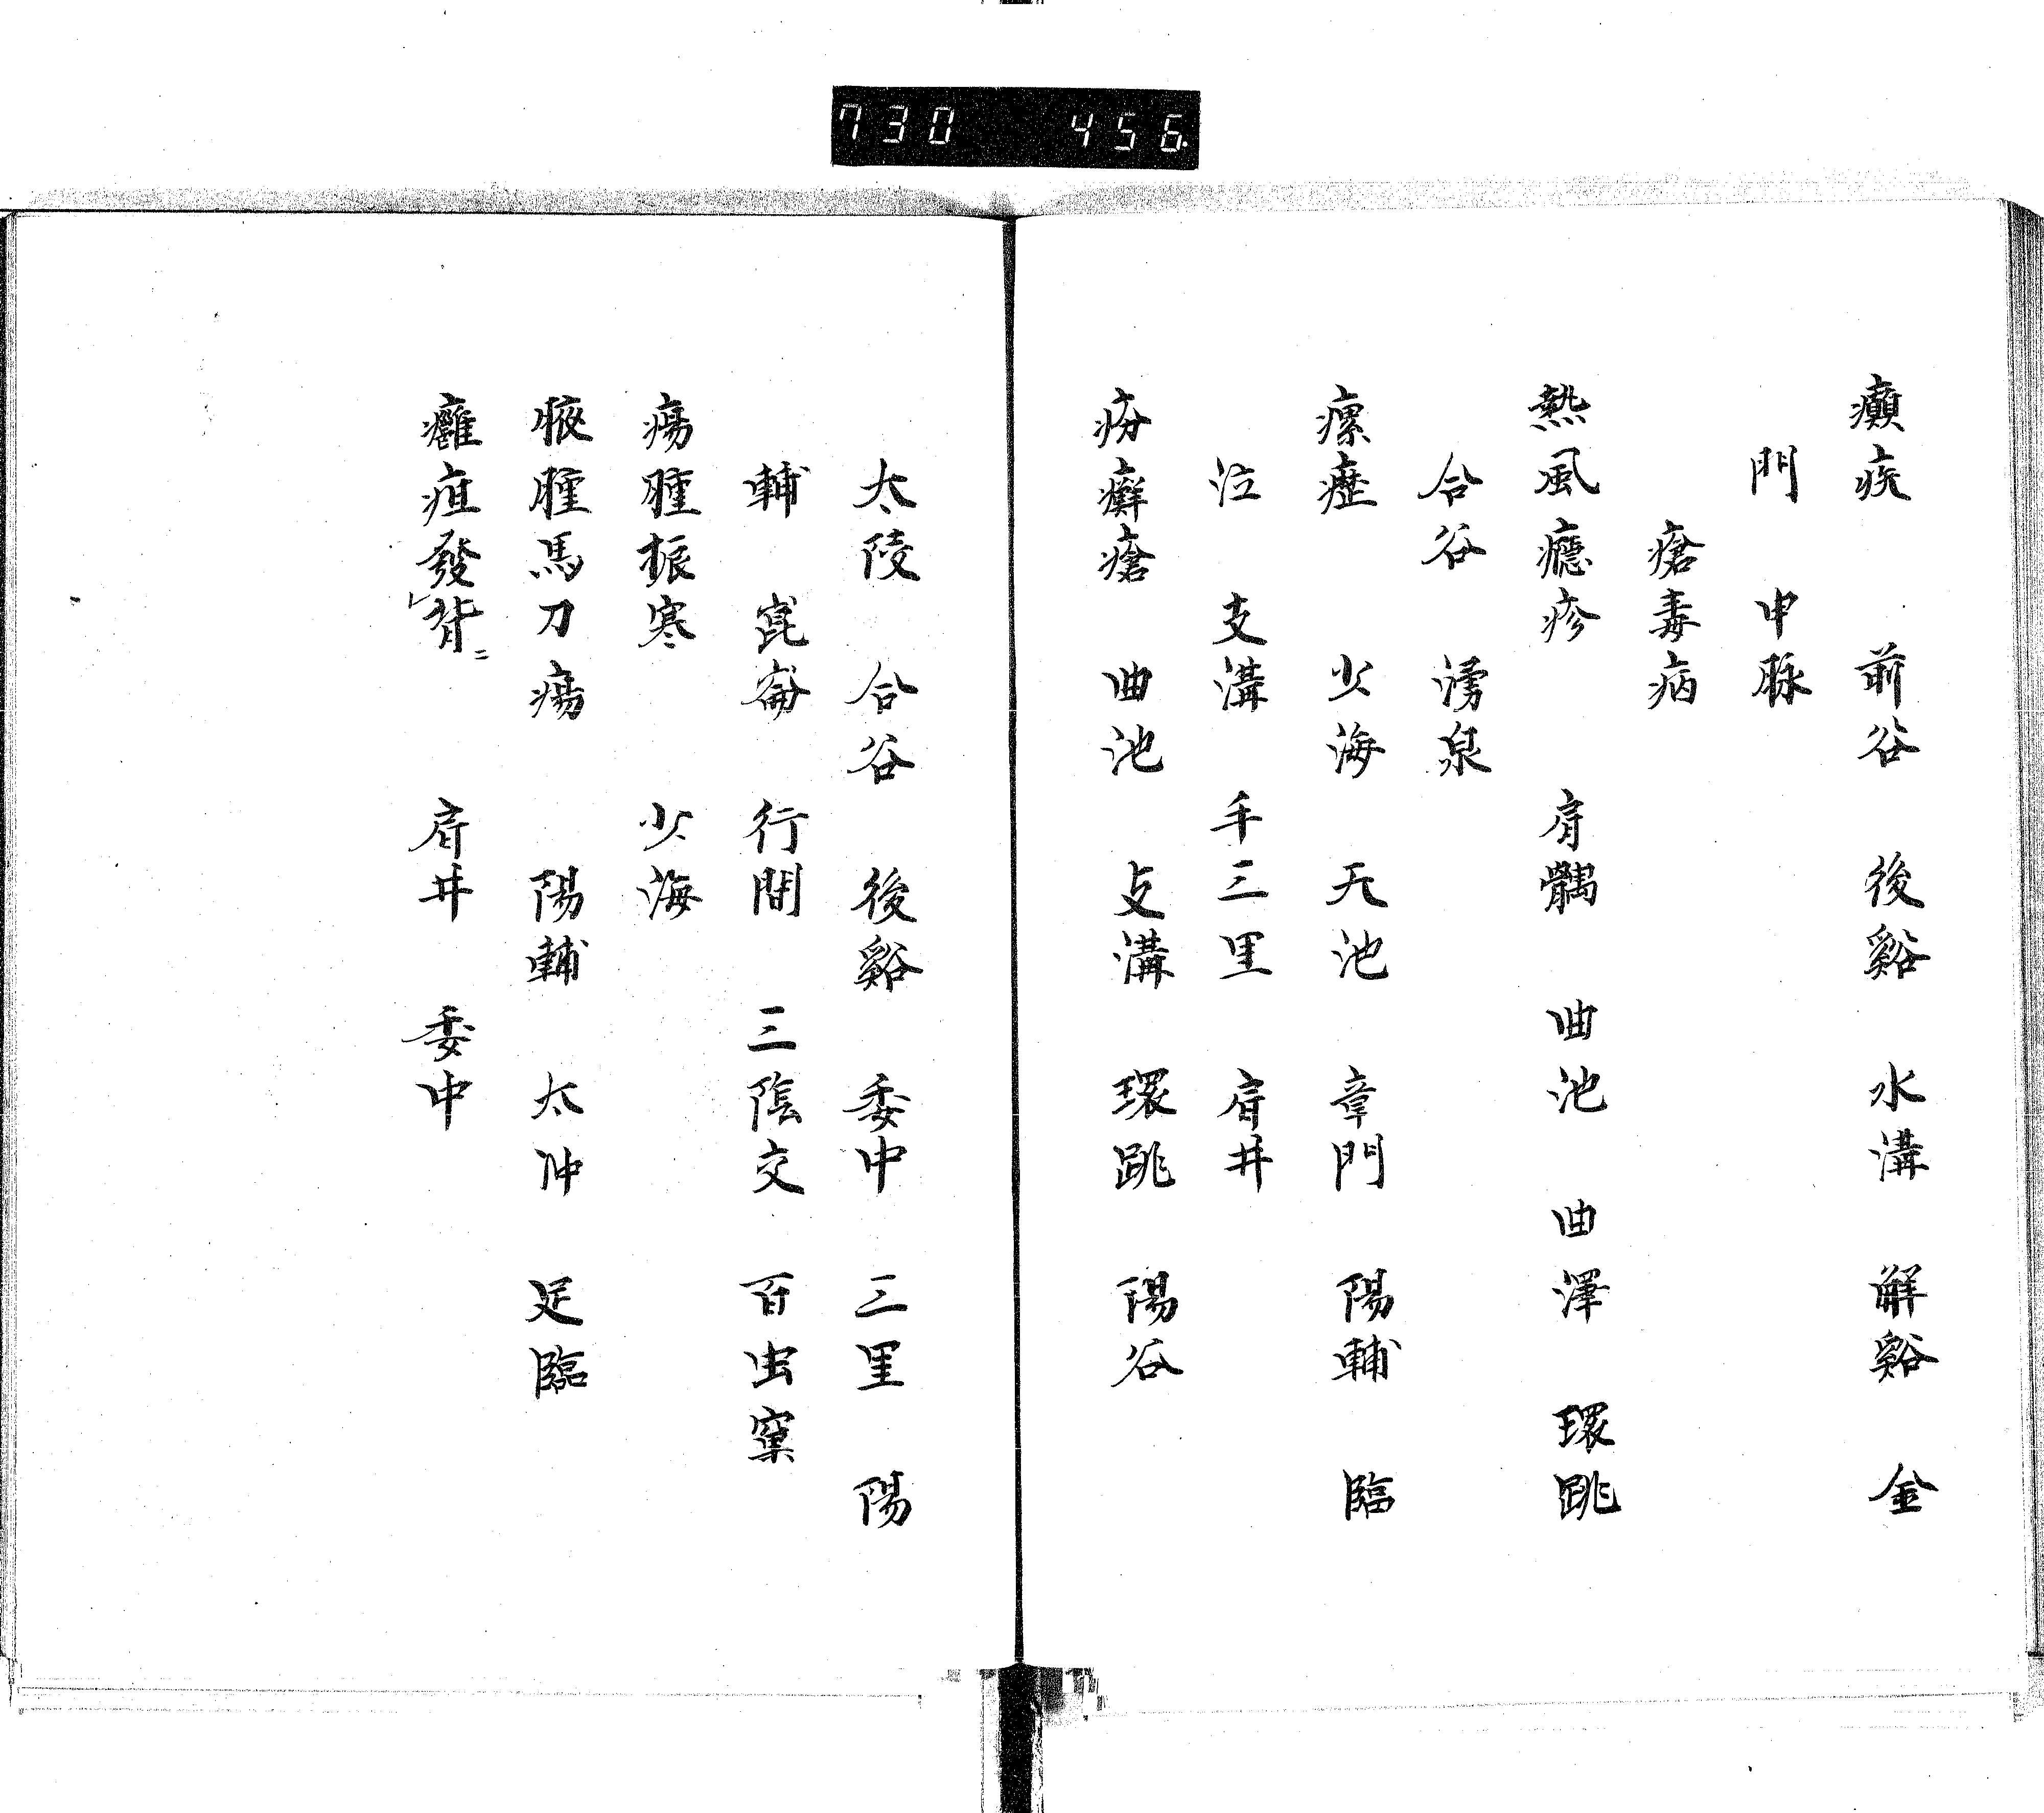 730 456
癲疾 前谷 後谿 水溝 解谿 金
門 申脉
瘡毒病
熱風癮疹 肩髃 曲池 曲澤 環跳
合谷 湧泉
瘰癧 少海 天池 章門 陽輔 臨
泣 支溝 手三里 肩井
疥癬瘡 曲池 支溝 環跳 陽谷
太陵 合谷 後谿 委中 三里 陽
輔 崑崙 行間 三陰交 百虫窠
瘍腫振寒 少海
腋腫馬刀瘍 陽輔 太冲 足臨
癰疽發背 肩井 委中